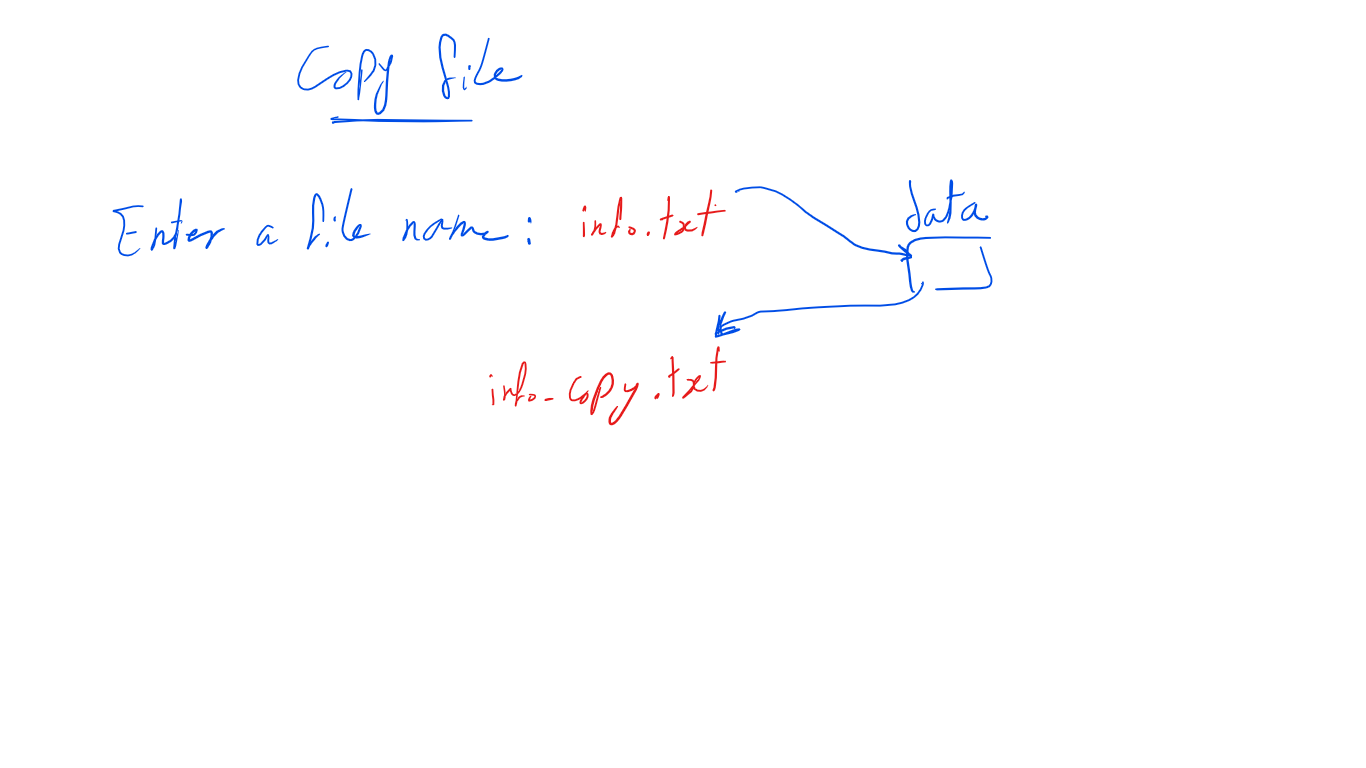 Copy file
Enter a file name: info.txt
data
info_copy.txt